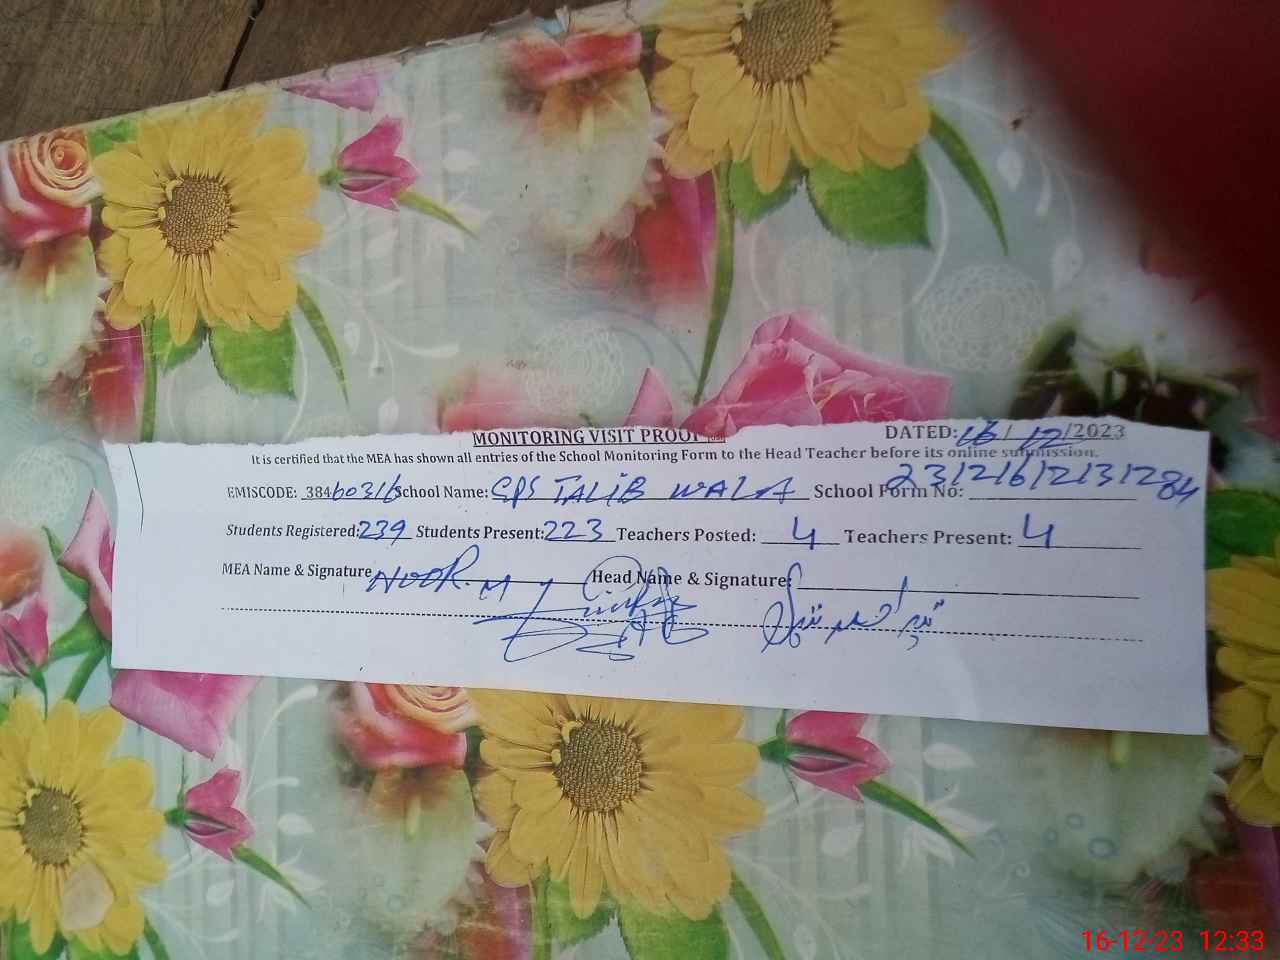 MONITORING VISIT PROOF
DATED: 16/12/2023
It is certified that the MEA has shown all entries of the School Monitoring Form to the Head Teacher before its online submission.
EMISCODE: 38460316 School Name: GPS TALIB WALA School Form No:
Students Registered: 239 Students Present: 223 Teachers Posted: 4 Teachers Present: 4
MEA Name & Signature NOOR. M Head Name & Signature:
16-12-23 12:33